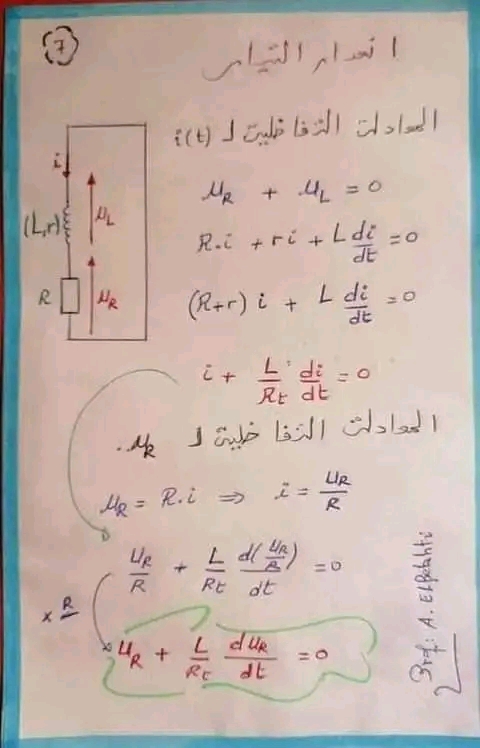 7
انعدام التيار
المعادلة التفاضلية لـ i(t)
u_R + u_L = 0
R.i + ri + L di/dt = 0
(R+r) i + L di/dt = 0
i + L/Rt di/dt = 0
i
(L,r)
u_L
R
u_R
المعادلة التفاضلية لـ u_R.
u_R = R.i ⇒ i = u_R/R
u_R/R + L/Rt d(u_R/R)/dt = 0
x R
u_R + L/Rt du_R/dt = 0
Prof: A.